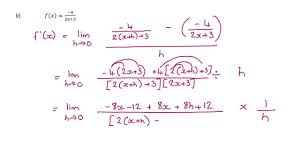 b) f(x) = -4/(2x+3)
f'(x) = lim h→0 [-4/(2(x+h)+3) - (-4/(2x+3))] / h
= lim h→0 (-4(2x+3) + 4[2(x+h)+3]) / ([2(x+h)+3][2x+3]) ÷ h
= lim h→0 (-8x-12 + 8x + 8h+12) / ([2(x+h) - × 1/h